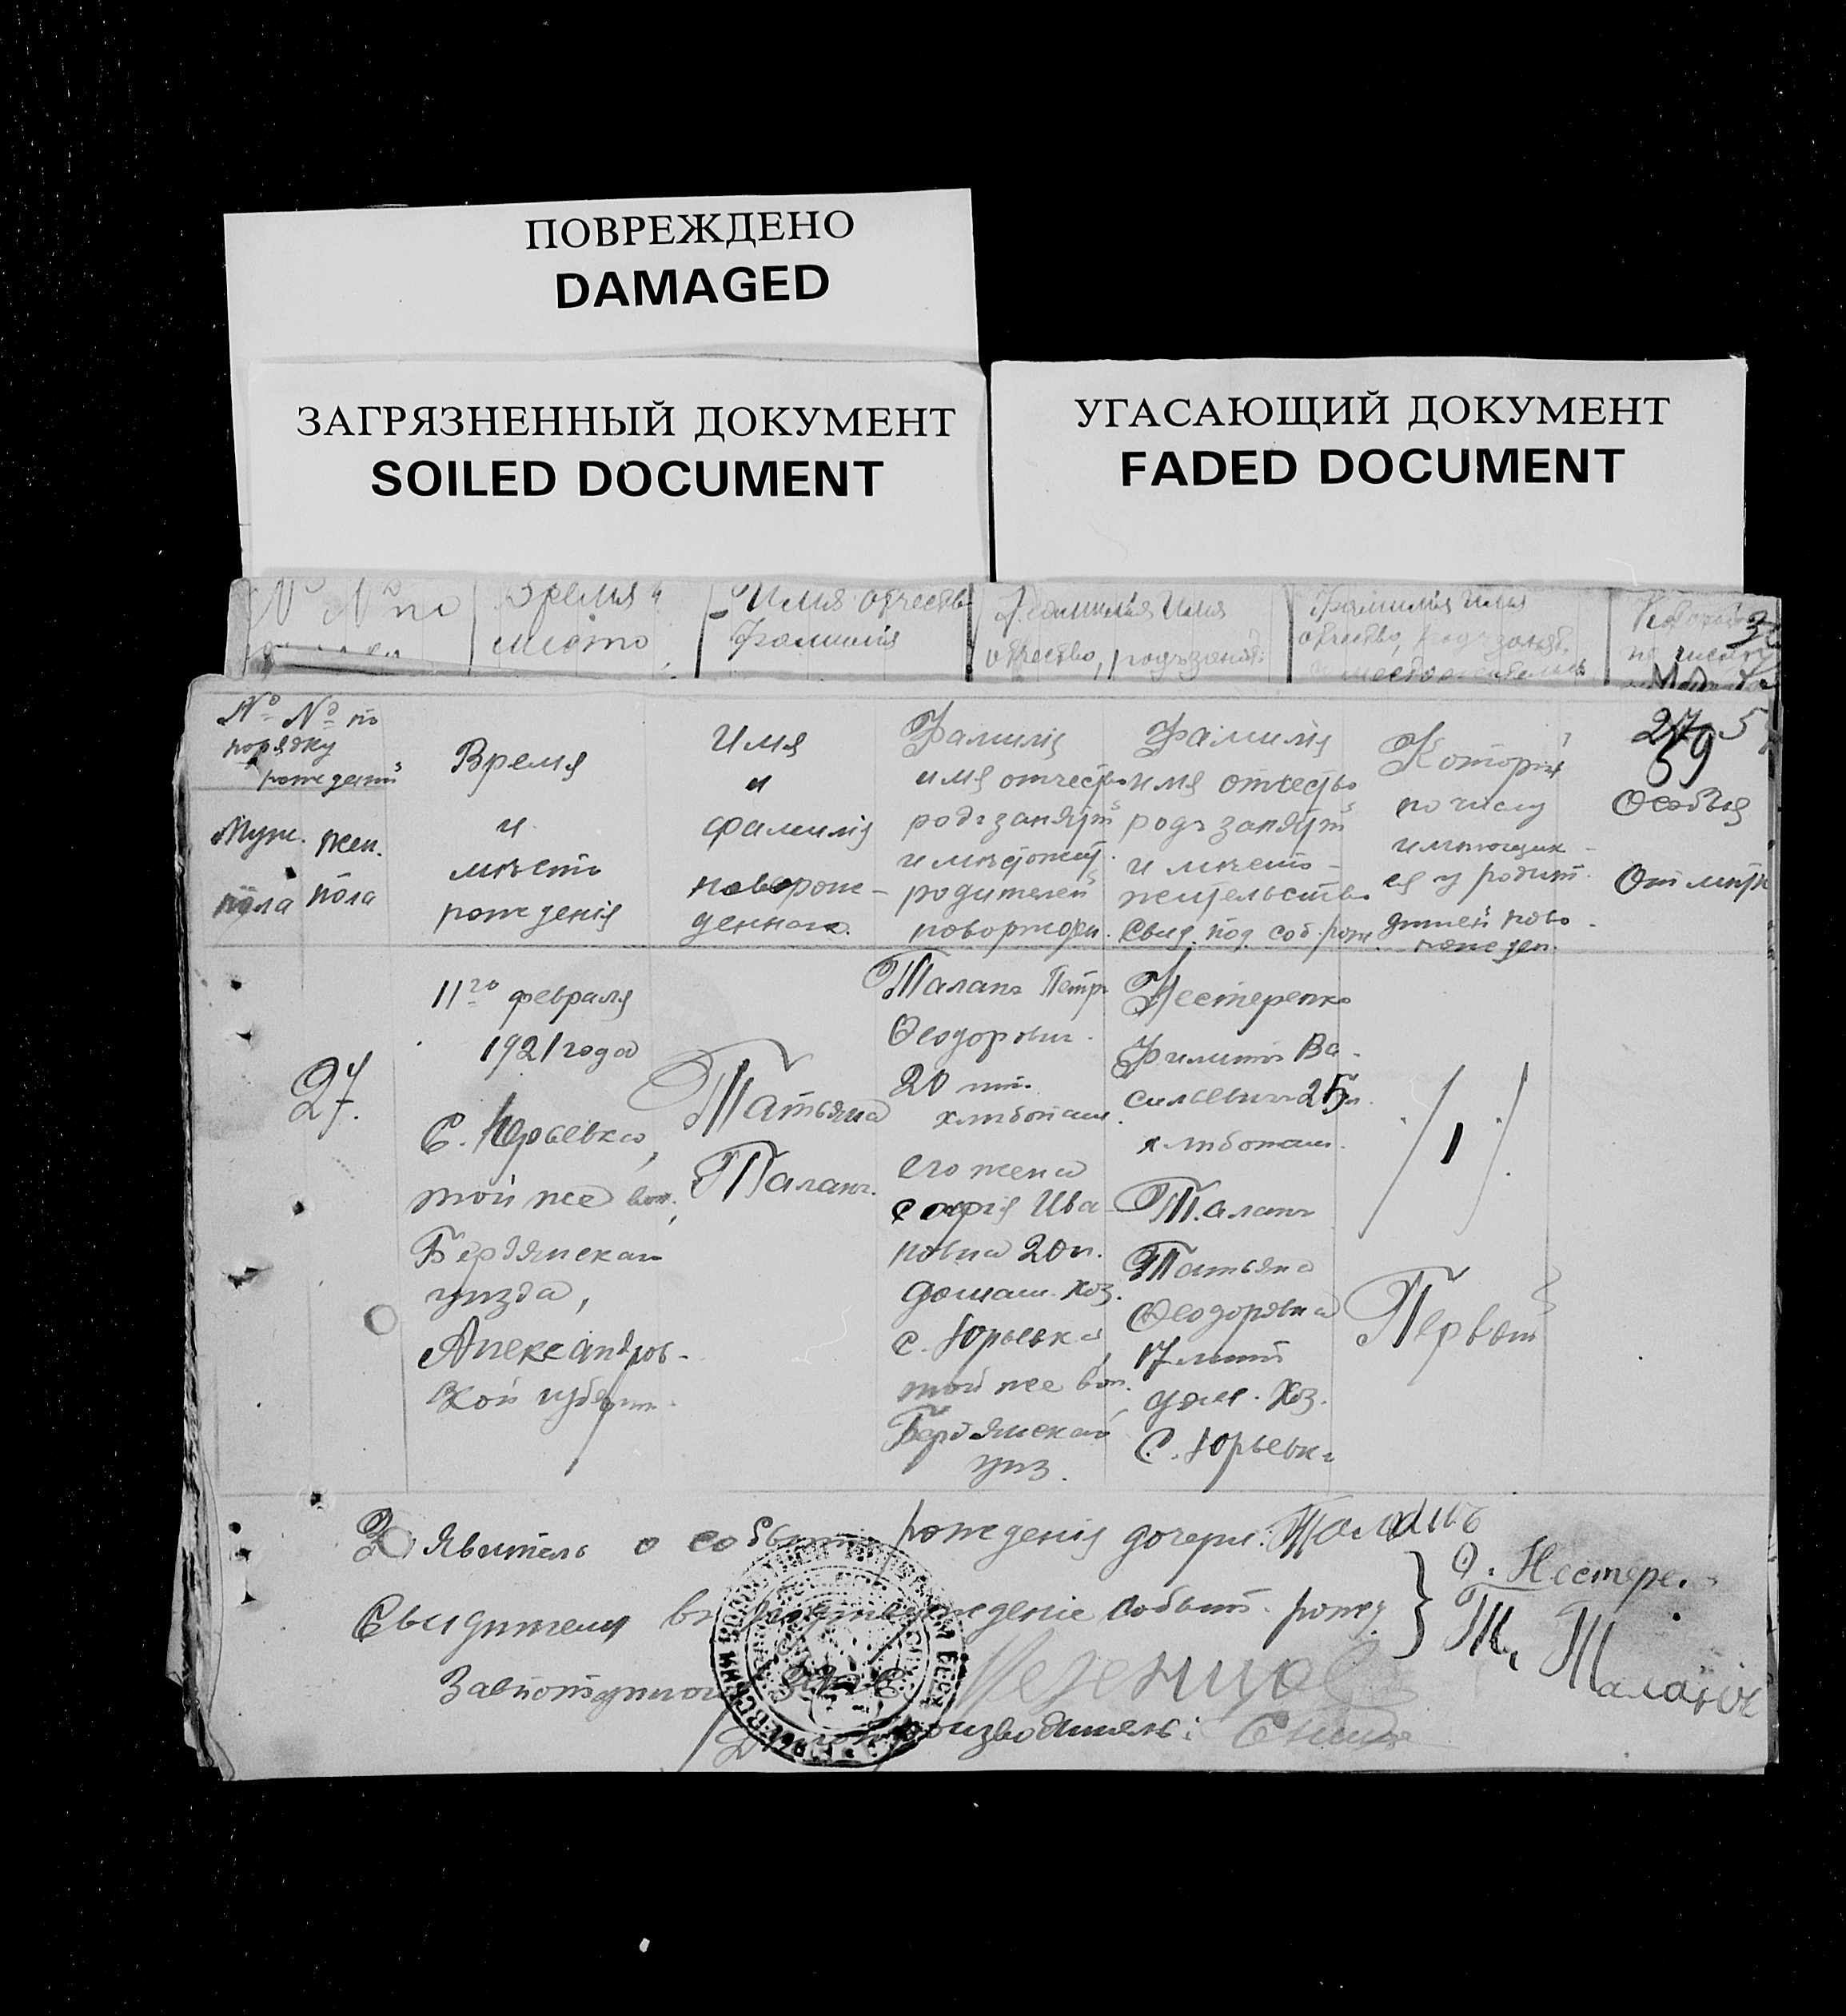 ПОВРЕЖДЕНО
DAMAGED
ЗАГРЯЗНЕННЫЙ ДОКУМЕНТ
SOILED DOCUMENT
УГАСАЮЩИЙ ДОКУМЕНТ
FADED DOCUMENT
№ № по
Время и
место
Имя отчество
Фамилія
Фамилія Имя
отчество, родъ занят.
Фамилія Имя
отчество, родъ занят.
№ № по
порядку
рожденій
Муж.
пола
жен.
пола
Время
и
мѣсто
рожденія
Имя
и
фамилія
новорож-
деннаго.
Фамилія
имя отчество
родъ занятій
и мѣстожит.
родителей
новорожден.
Фамилія
имя отчество
родъ занятій
и мѣсто-
жительство
свид. под. соб. рож.
Который
по числу
имѣющих-
ся у родит.
дѣтей ново-
рожден.
27 5
59
Особыя
Отмѣтк
27.
11го февраля
1921 года
С. Юрьевка,
той же вол.,
Бердянскаго
уѣзда,
Александров-
ской губерн.
Татьяна
Таланъ.
Таланъ Петръ
Ѳеодорович.
20 лѣт.
хлѣбопаш.
его жена
Софія Ива-
новна 20 л.
домаш. хоз.
с. Юрьевка,
той же вол.
Бердянскаго
уѣз.
Нестеренко
Филиппъ Ва-
сильевичъ 25 л.
хлѣбопаш.
Таланъ
Татьяна
Ѳеодоровна
17 лѣтъ
дом. хоз.
С. Юрьевка
/ 1 /
Первый
Заявитель о событіи рожденія дочери: Таланъ
Свидѣтели въ подтвержденіе событ. рожд. } Ф. Нестере.
Т. Таланъ
Завпотдѣлом ЗАГС
Дѣлопроизводитель: